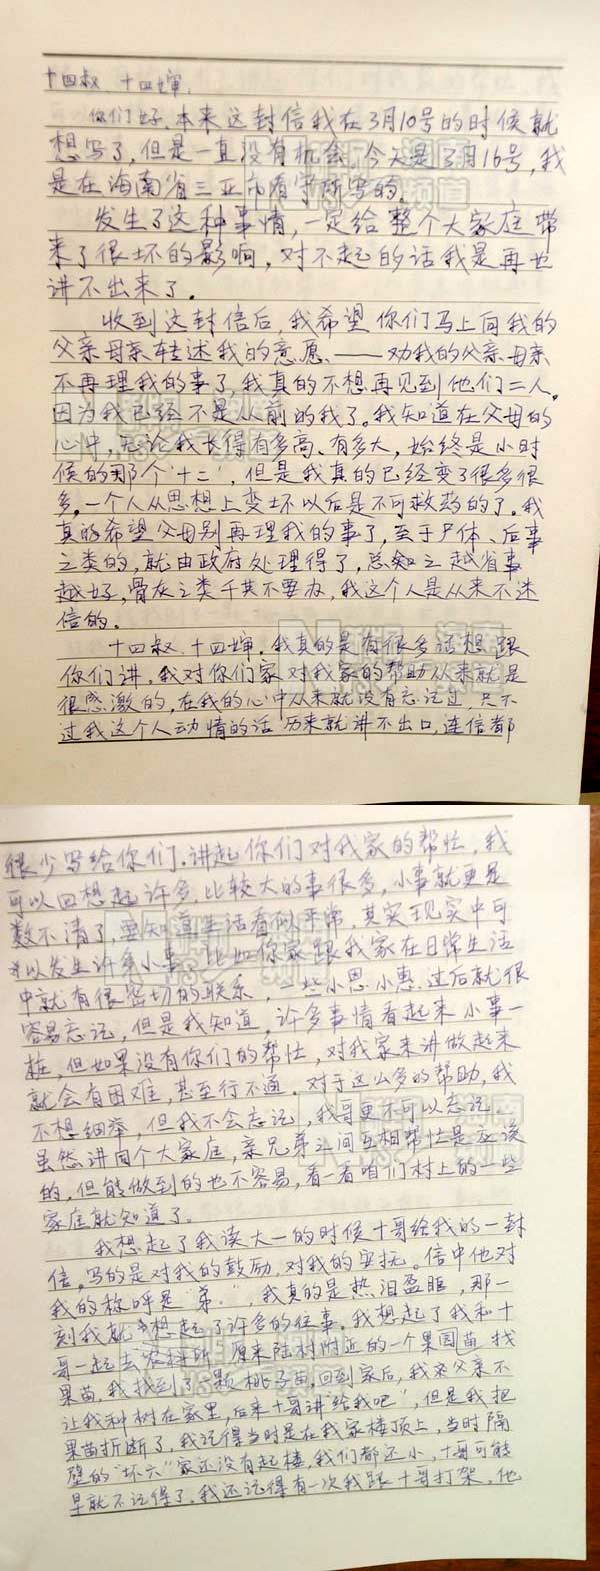 十四叔、十四婶,
你们好,本来这封信我在3月10号的时候就
想写了,但是一直没有机会,今天是3月16号,我
是在海南省三亚市看守所写的。
发生了这种事情,一定给整个大家庭带
来了很坏的影响,对不起的话我是再也
讲不出来了。
收到这封信后,我希望你们马上向我的
父亲母亲转述我的意愿、——劝我的父亲母亲
不再理我的事了,我真的不想再见到他们二人。
因为我已经不是从前的我了。我知道在父母的
心中,无论我长得有多高、有多大,始终是小时
候的那个"十二",但是我真的已经变了很多很
多,一个人从思想上变坏以后是不可救药的了。我
真的希望父母别再理我的事了,至于尸体、后事
之类的,就由政府处理得了,总知之越省事
越好,骨灰之类千其不要办,我这个人是从来不迷
信的。
十四叔、十四婶,我真的是有很多话想跟
你们讲,我对你们家对我家的帮助从来就是
很感激的,在我的心中从来就没有忘记过,只不
过我这个人动情的话历来就讲不出口,连信都
很少写给你们。讲起你们对我家的帮忙,我
可以回想起许多,比较大的事很多,小事就更是
数不清了,要知道生活看似平常,其实现实中可
以发生许多小事,比如你家跟我家在日常生活
中就有很密切的联系,一些小恩小惠,过后就很
容易忘记,但是我知道,许多事情看起来小事一
桩,但如果没有你们的帮忙,对我家来讲做起来
就会有困难,甚至行不通。对于这么多的帮助,我
不想细举,但我不会忘记,我哥更不可以忘记。
虽然讲同个大家庭,亲兄弟之间互相帮忙是应该
的,但能做到的也不容易,看一看咱们村上的一些
家庭就知道了。
我想起了我读大一的时候十哥给我的一封
信。写的是对我的鼓励、对我的安抚。信中他对
我的称呼是"弟",我真的是热泪盈眶,那一
刻我就想起了许多的往事。我想起了我和十
哥一起去农科所,原来陆村附近的一个果园苗找
果苗,我找到了一颗桃子苗,回到家后,我父亲不
让我种树在家里,后来十哥讲给我吧,但是我把
果苗折断了,我记得当时是在我家楼顶上,当时隔
壁的"坏六"家还没有起楼,我们都还小,十哥可能
早就不记得了。我还记得有一次我跟十哥打架,他